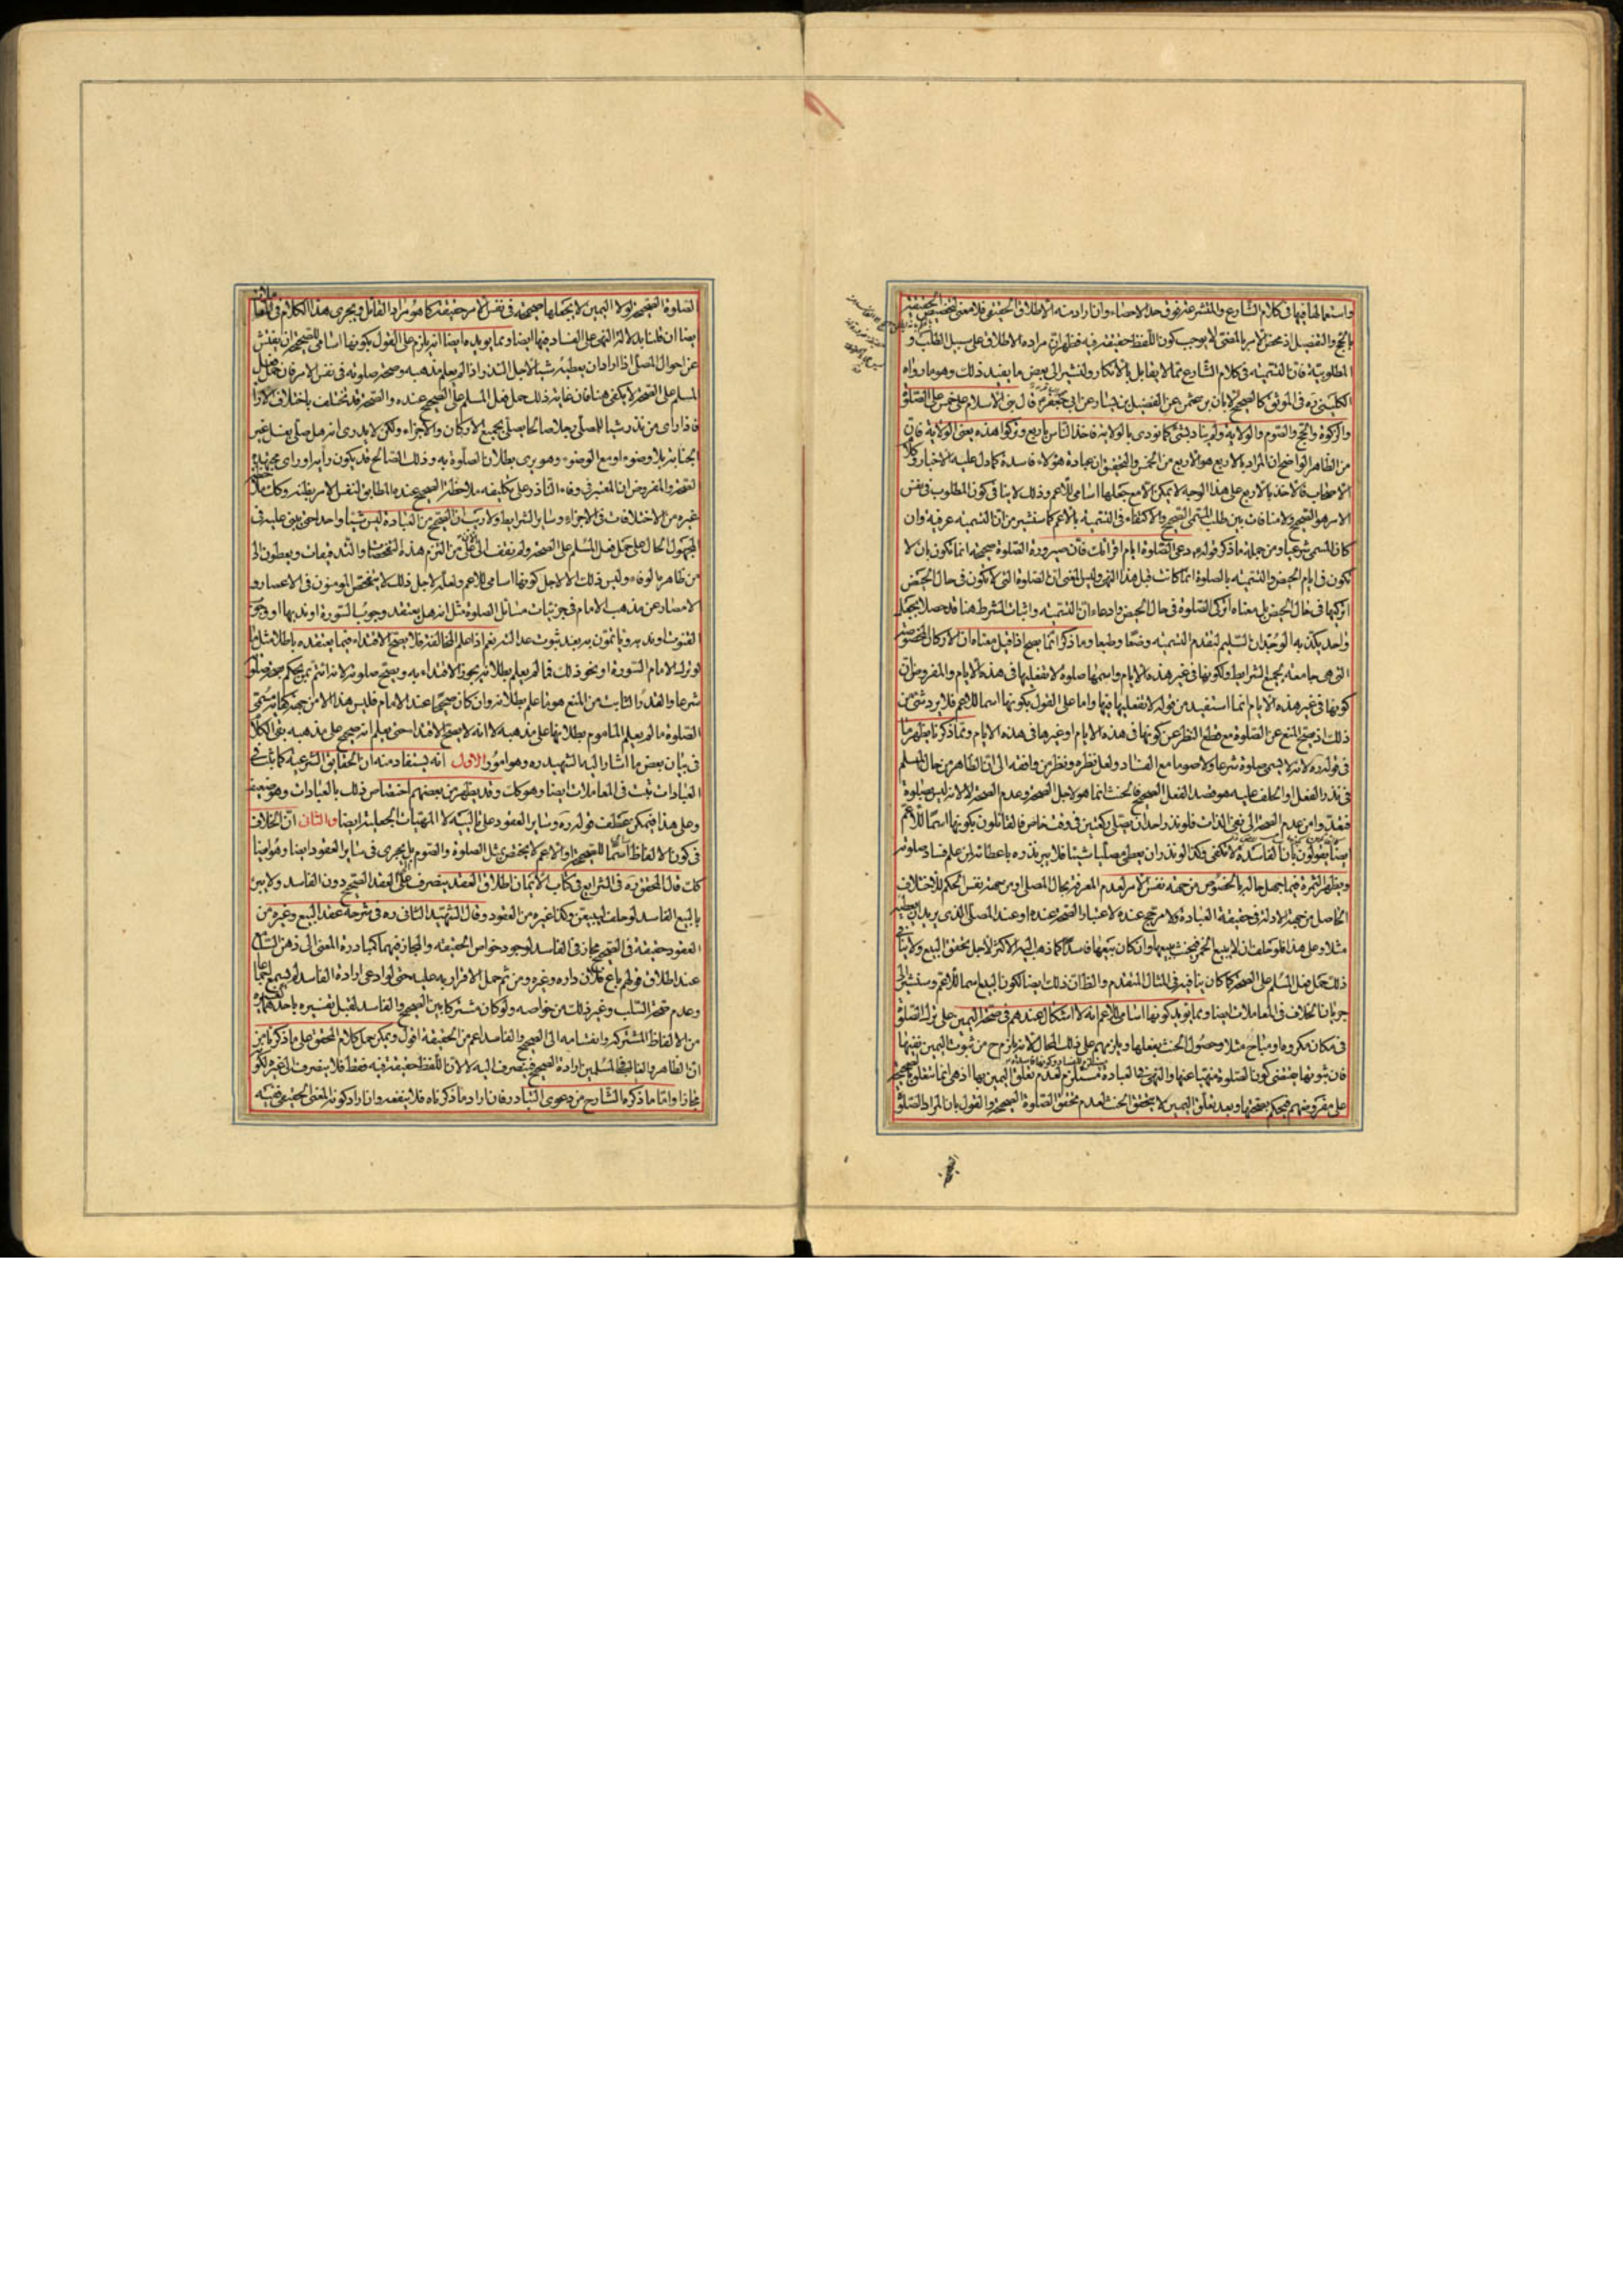 واستعمالها فيها في كلام الشارع والمتشرعة فوق حد الاحصاء وان اراد منه الاطلاق الحقيقي فلا معنى لتخصيص الحقيقة
بالحج والتفصيل اذ محض الامر بالمضي لا يوجب كون اللفظ حقيقة فيه فظهر ان مراده الاطلاق على سبيل الطلب و
المطلوبية فان التسمية في كلام الشارع مما لا يقابل بالانكار ولنشير الى بعض ما يفيد ذلك وهو ما رواه
الكليني ره في الموثق كالصحيح لابان بن عثمن عن الفضيل بن يسار عن ابي جعفر قال بنى الاسلام على خمس على الصلوة
والزكوة والحج والصوم والولاية ولم يناد بشئ كما نودى بالولاية فاخذ الناس باربع وتركوا هذه يعنى الولاية فان
من الظاهر الواضح ان المراد بالاربع هو الاربع من الخمس والتحقيق ان عبادة هؤلاء فاسدة كما دل عليه الاخبار وكلام
الاصحاب فالاخذ بالاربع على هذا الوجه لا يمكن الا مع جعلها اسامى للاعم وذلك لا ينافى كون المطلوب فى نفس
الامر هو الصحيح ولا منافات بين طلب المسمى الصحيح والاكتفاء فى التسمية بالاعم كما سنشير من ان التسمية عرفية وان
كان المسمى شرعيا ومن جملة ما ذكر قوله دعى الصلوة ايام اقرائك فان صيرورة الصلوة صحيحة انما تكون بان لا
تكون فى ايام الحيض والتسمية بالصلوة انما كانت قبل هذا النهى وليس المعنى ان الصلوة التى لا تكون فى حال الحيض
اتركيها فى حال الحيض بل معناه اتركى الصلوة فى حال الحيض وادعاء ان التسمية واثبات الشرط هنا قد حصلا بجعل
واحد يكذبه الوجدان السليم لتقدم التسمية وضعا وطبعا وما ذكر انما يصح اذا قيل معناه ان الاركان المخصوصة
التى هى جامعة لجميع الشرايط ولكونها فى غير هذه الايام واسمها صلوة لا تفعليها فى هذه الايام والمفروض ان
كونها فى غير هذه الايام انما استفيد من قوله لا تفعليها فيها واما على القول بكونها اسما للاعم فلا يرد شئ من
ذلك اذ يصح المنع عن الصلوة مع قطع النظر عن كونها فى هذه الايام او غيرها فى هذه الايام ومما ذكرنا يظهر ما
فى قوله ره لانه لا يسمى صلوة شرعا ولا صوما مع الفساد ولعل نظره ونظر من وافقه الى ان الظاهر من حال المسلم
فى نذر الفعل او الحلف عليه هو قصد الفعل الصحيح فالحنث انما هو لاجل الصحة وعدم الصحة لا لانه ليس بصلوة
فتعدى من عدم الصحة الى نفى الذات فلو نذر واحد ان يصلى ركعتين فى وقت خاص فالقائلون بكونها اسما للاعم
ايضا يقولون بان الفاسدة لا تكفى وكذا لو نذر ان يعطى مصليا شيئا فلا يبر نذره باعطائه لمن علم فساد صلوته
ويظهر الثمرة فيما جهل حاله بالخصوص من جهة نفس الامر لعدم المعرفة بحال المصلى او من جهة نفس الحكم للاختلاف
الحاصل من جهة الادلة فى حقيقة العبادة ولا مرجح عنده لاعتبار الصحة عنده او عند المصلى الذى يريد ان يعطيه
مثلا وعلى هذا فلو حلف ان لا يبيع الخمر فيحنث ببيعها وان كان بيعها فاسدا كما ذهب اليه الاكثر لاجل تحقق البيع ولا ينافى
ذلك حمل فعل المسلم على الصحة كما كان ينافيه فى المثال المتقدم والظان ذلك ايضا لكون البيع اسما للاعم وسنشير الى
جريان الخلاف فى المعاملات ايضا ومما يؤيد كونها اسامى للاعم انه لا اشكال عندهم فى صحة اليمين على ترك الصلوة
فى مكان مكروه او مباح مثلا وحصول الحنث بفعلها ويلزمهم على ذلك المحال لانه يلزم ح من ثبوت اليمين نفيها
فان ثبوتها يقتضى كون الصلوة منهيا عنها والنهى فى العبادة مستلزم لعدم تعلق اليمين بها اذ هى انما تتعلق بالصحيحة
على مفروضهم فيحكم بصحتها وبعد تعلق اليمين لا يتحقق الحنث لعدم تحقق الصلوة الصحيحة والقول بان المراد الصلوة
الصلوة الصحيحة لولا اليمين لا يجعلها صحيحة فى نفس الامر حقيقة كما هو مراد القائل ويجرى هذا الكلام فى المعاملات
ايضا ان قلنا بدلالة النهى على الفساد فيها ايضا ومما يؤيده ايضا انه يلزم على القول بكونها اسامى للصحيحة ان يفتش
عن احوال المصلى اذا اراد ان يعطيه شيئا لاجل النذر اذا لم يعلم مذهبه وصحة صلوته فى نفس الامر فان حمل فعل
المسلم على الصحة لا يكفى هنا فان غاية ذلك حمل فعل المسلم على الصحيح عنده والصحة قد تختلف باختلاف الآراء
فاذا راى من نذر شيئا للمصلى رجلا صالحا يصلى بجميع الاركان والاجزاء ولكن لا يدرى انه هل صلى بغسل غير
الجنابة بلا وضوء او مع الوضوء وهو يرى بطلان الصلوة به وذلك الصالح قد يكون رأيه او راى مجتهده
الصحة والمفروض ان المعتبر فى وفاء الناذر على تكليفه ملاحظة الصحيح عنده المطابق لنفس الامر بظنه وكك ملاحظة
غيره من الاختلافات فى الاجزاء وسائر الشرايط ولا ريب ان الصحيح من العبادة ليس شيئا واحدا حتى يبنى عليه فى
المجهول الحال على حمل فعل المسلم على الصحة ولم نقف الى الآن على من التزم هذه التفحصات والتدقيقات ويعطون الى
من ظاهره بالوفاء وليس ذلك الا لاجل كونها اسامى للاعم ولعله لاجل ذلك لا يتفحص المؤمنون فى الاعصار و
الامصار عن مذهب الامام فى جزئيات مسائل الصلوة مثل انه هل يعتقد وجوب السورة او ندبها او وجوب
القنوت او ندبه وياتمون به بعد ثبوت عدالته نعم اذا علم المخالفة فلا يصح الاقتداء فيما يعتقده باطلا مثل ما
لو ترك الامام السورة او نحو ذلك فما لم يعلم بطلانه يجوز الاقتداء به ويصح صلوته لانه ائتم بمن يحكم بصحة صلوته
شرعا والقدر الثابت من المنع هو ما علم بطلانه وان كان صحيحا عند الامام فليس هذا الا من جهة كفاية مسمى
الصلوة ما لم يعلم المأموم بطلانها على مذهبه لا انه لا يصح الاقتداء حتى يعلم انه صحيح على مذهبه بقى الكلام
فى بيان بعض ما اشار اليه الشهيد ره وهو امور الاول انه يستفاد منه ان الحقايق الشرعية كما ثبت فى
العبادات ثبت فى المعاملات ايضا وهو كك وقد يظهر من بعضهم اختصاص ذلك بالعبادات وهو ضعيف
وعلى هذا فيمكن عطف قوله ره وساير العقود على الماهيات الجعلية ايضا والثانى ان الخلاف
فى كون الالفاظ اسما للصحيحة او الاعم لا يختص بمثل الصلوة والصوم بل يجرى فى سائر العقود ايضا وهو ايضا
كك قال المحقق ره فى الشرايع فى كتاب الايمان اطلاق العقد ينصرف الى العقد الصحيح دون الفاسد ولا يبر
بالبيع الفاسد لو حلف ليبيعن وكذا غيره من العقود وقال الشهيد الثانى ره فى شرحه عقد البيع وغيره من
العقود حقيقة فى الصحيح مجاز فى الفاسد لوجود خواص الحقيقة والمجاز فيهما كمبادرة المعنى الى ذهن السامع
عند اطلاق قولهم باع فلان داره وغيره ومن ثم حمل الاقرار به عليه حتى لو ادعى ارادة الفاسد لم يسمع اجماعا
وعدم صحة السلب وغير ذلك من خواصه ولو كان مشتركا بين الصحيح والفاسد لقبل تفسيره باحدهما كغيره
من الالفاظ المشتركة وانقسامه الى الصحيح والفاسد اعم من الحقيقة اقول ويمكن حمل كلام المحقق على ما ذكرنا من
ان الظاهر والغالب فى المسلمين ارادة الصحيح فينصرف اليه لا لان اللفظ حقيقة فيه فقط فلا ينصرف الى غيره لكونه
مجازا واما ما ذكره الشارح من دعوى التبادر فان اراد ما ذكرناه فلا ينفعه وان اراد كونه المعنى الحقيقى فيه